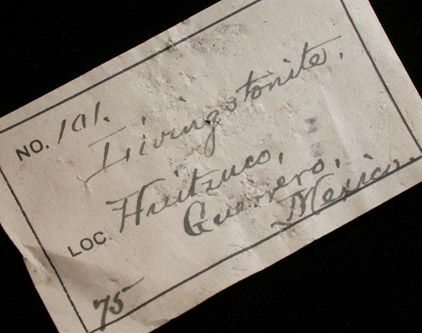 NO. 101.
Livingstonite.
LOC. Huitzuco,
Guerrero,
Mexico.
75